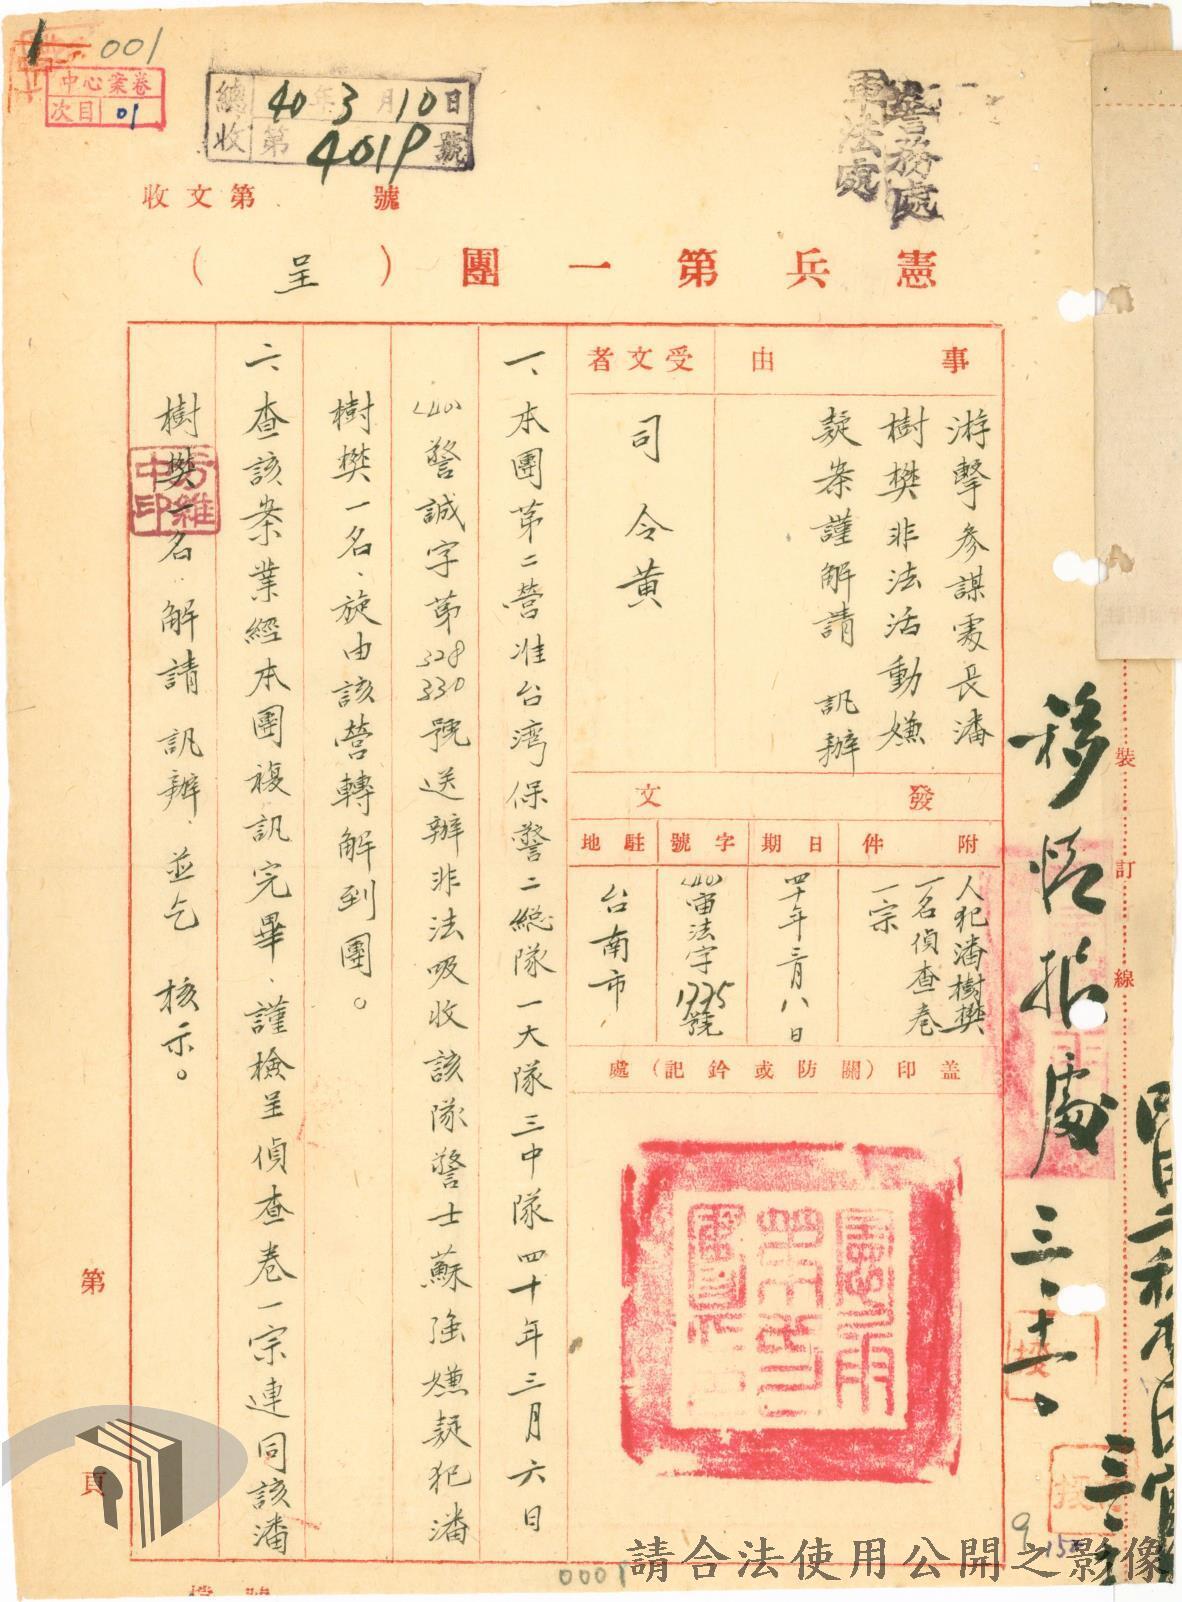 001
中心案卷
次目 01
總收 40年3月10日
第4019號
收文第 號
警務處
軍法處
憲兵第一團（呈）
事由
游擊參謀處長潘
樹樊非法活動嫌
疑案謹解請 訊辦
受文者
司令黃
發文
附件
人犯潘樹樊
一名偵查卷
一宗
日期
四十年三月八日
字號
(40)審法字
1775號
駐地
台南市
蓋印（關防或鈐記）處
一、本團第二營准台灣保警二總隊一大隊三中隊四十年三月六日
(40)警誠字第328 330號送辦非法吸收該隊警士蘇強嫌疑犯潘
樹樊一名、旋由該營轉解到團。
二、查該案業經本團複訊完畢、謹檢呈偵查卷一宗連同該潘
樹樊一名、解請 訊辦、並乞 核示。
移情報處
三、十一、
裝訂線
第 頁
0001
請合法使用公開之影像